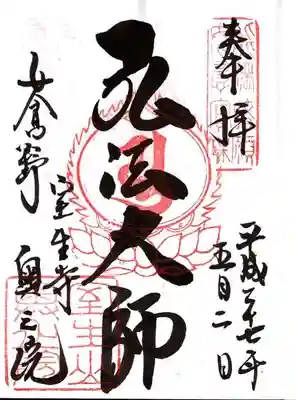 奉拝
平成二十七年
五月二日
弘法大師
女高野
室生寺
奥之院